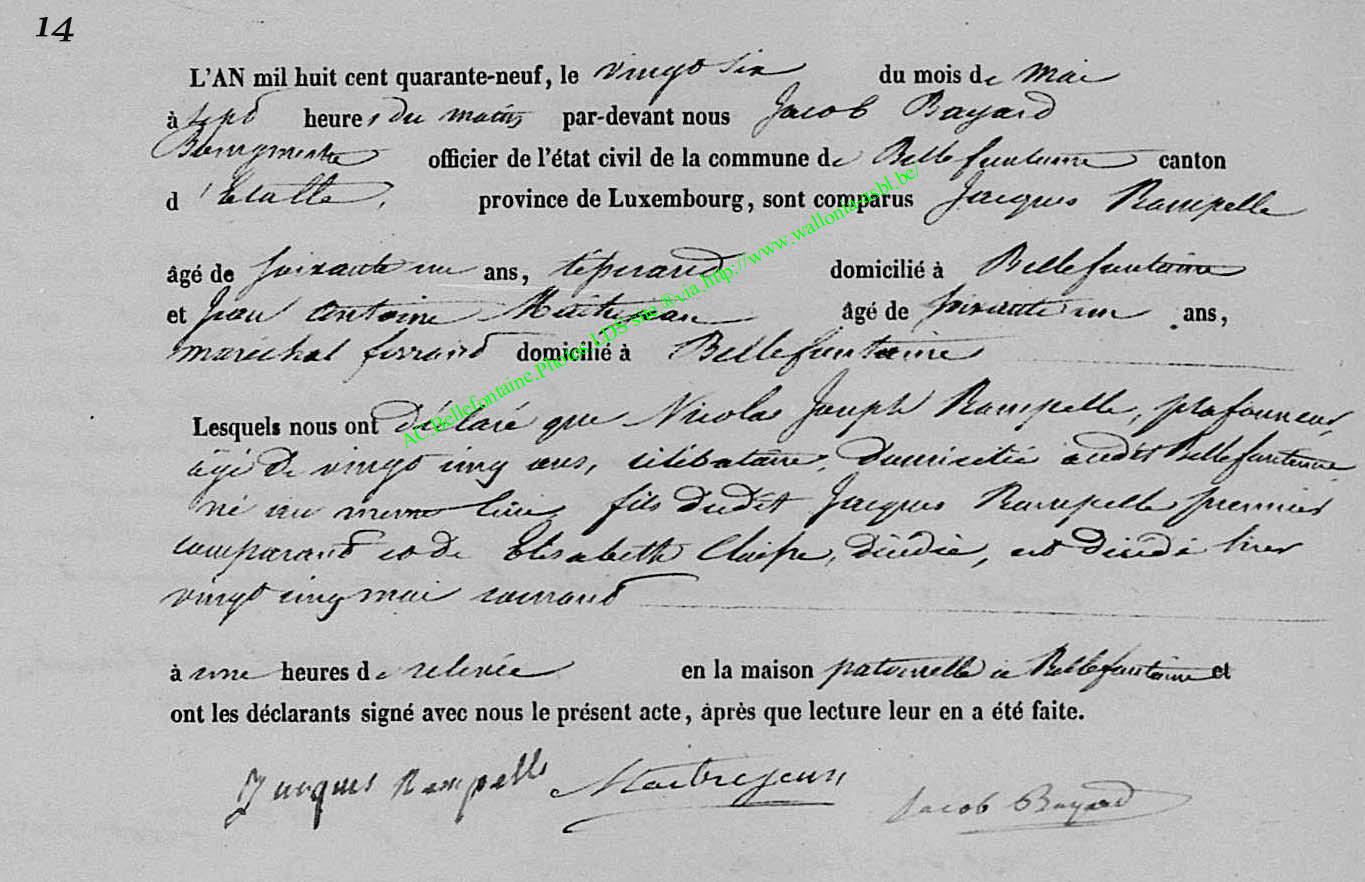 14
L'AN mil huit cent quarante-neuf, le vingt six du mois de mai
à sept heures du matin par-devant nous Jacob Bayard
Bourgmestre officier de l'état civil de la commune de Bellefontaine canton
d'Etalle, province de Luxembourg, sont comparus Jacques Rampelle
âgé de soixante un ans, domicilié à Bellefontaine
et Jean Antoine Maitrejean âgé de soixante un ans,
maréchal ferrand domicilié à Bellefontaine
Lesquels nous ont déclaré que Nicolas Joseph Rampelle, plafonneur,
âgé de vingt cinq ans, célibataire, domicilié audit Bellefontaine
né au meme lieu, fils dudit Jacques Rampelle premier
comparant et de Elisabeth décédée, est décédé hier
vingt cinq mai courant
à une heures de relevée en la maison paternelle à Bellefontaine et
ont les déclarants signé avec nous le présent acte, après que lecture leur en a été faite.
Jacques Rampelle Maitrejean Jacob Bayard
AC.Bellefontaine.Photos LDS site ®via.http://www.wallonia-asbl.be/